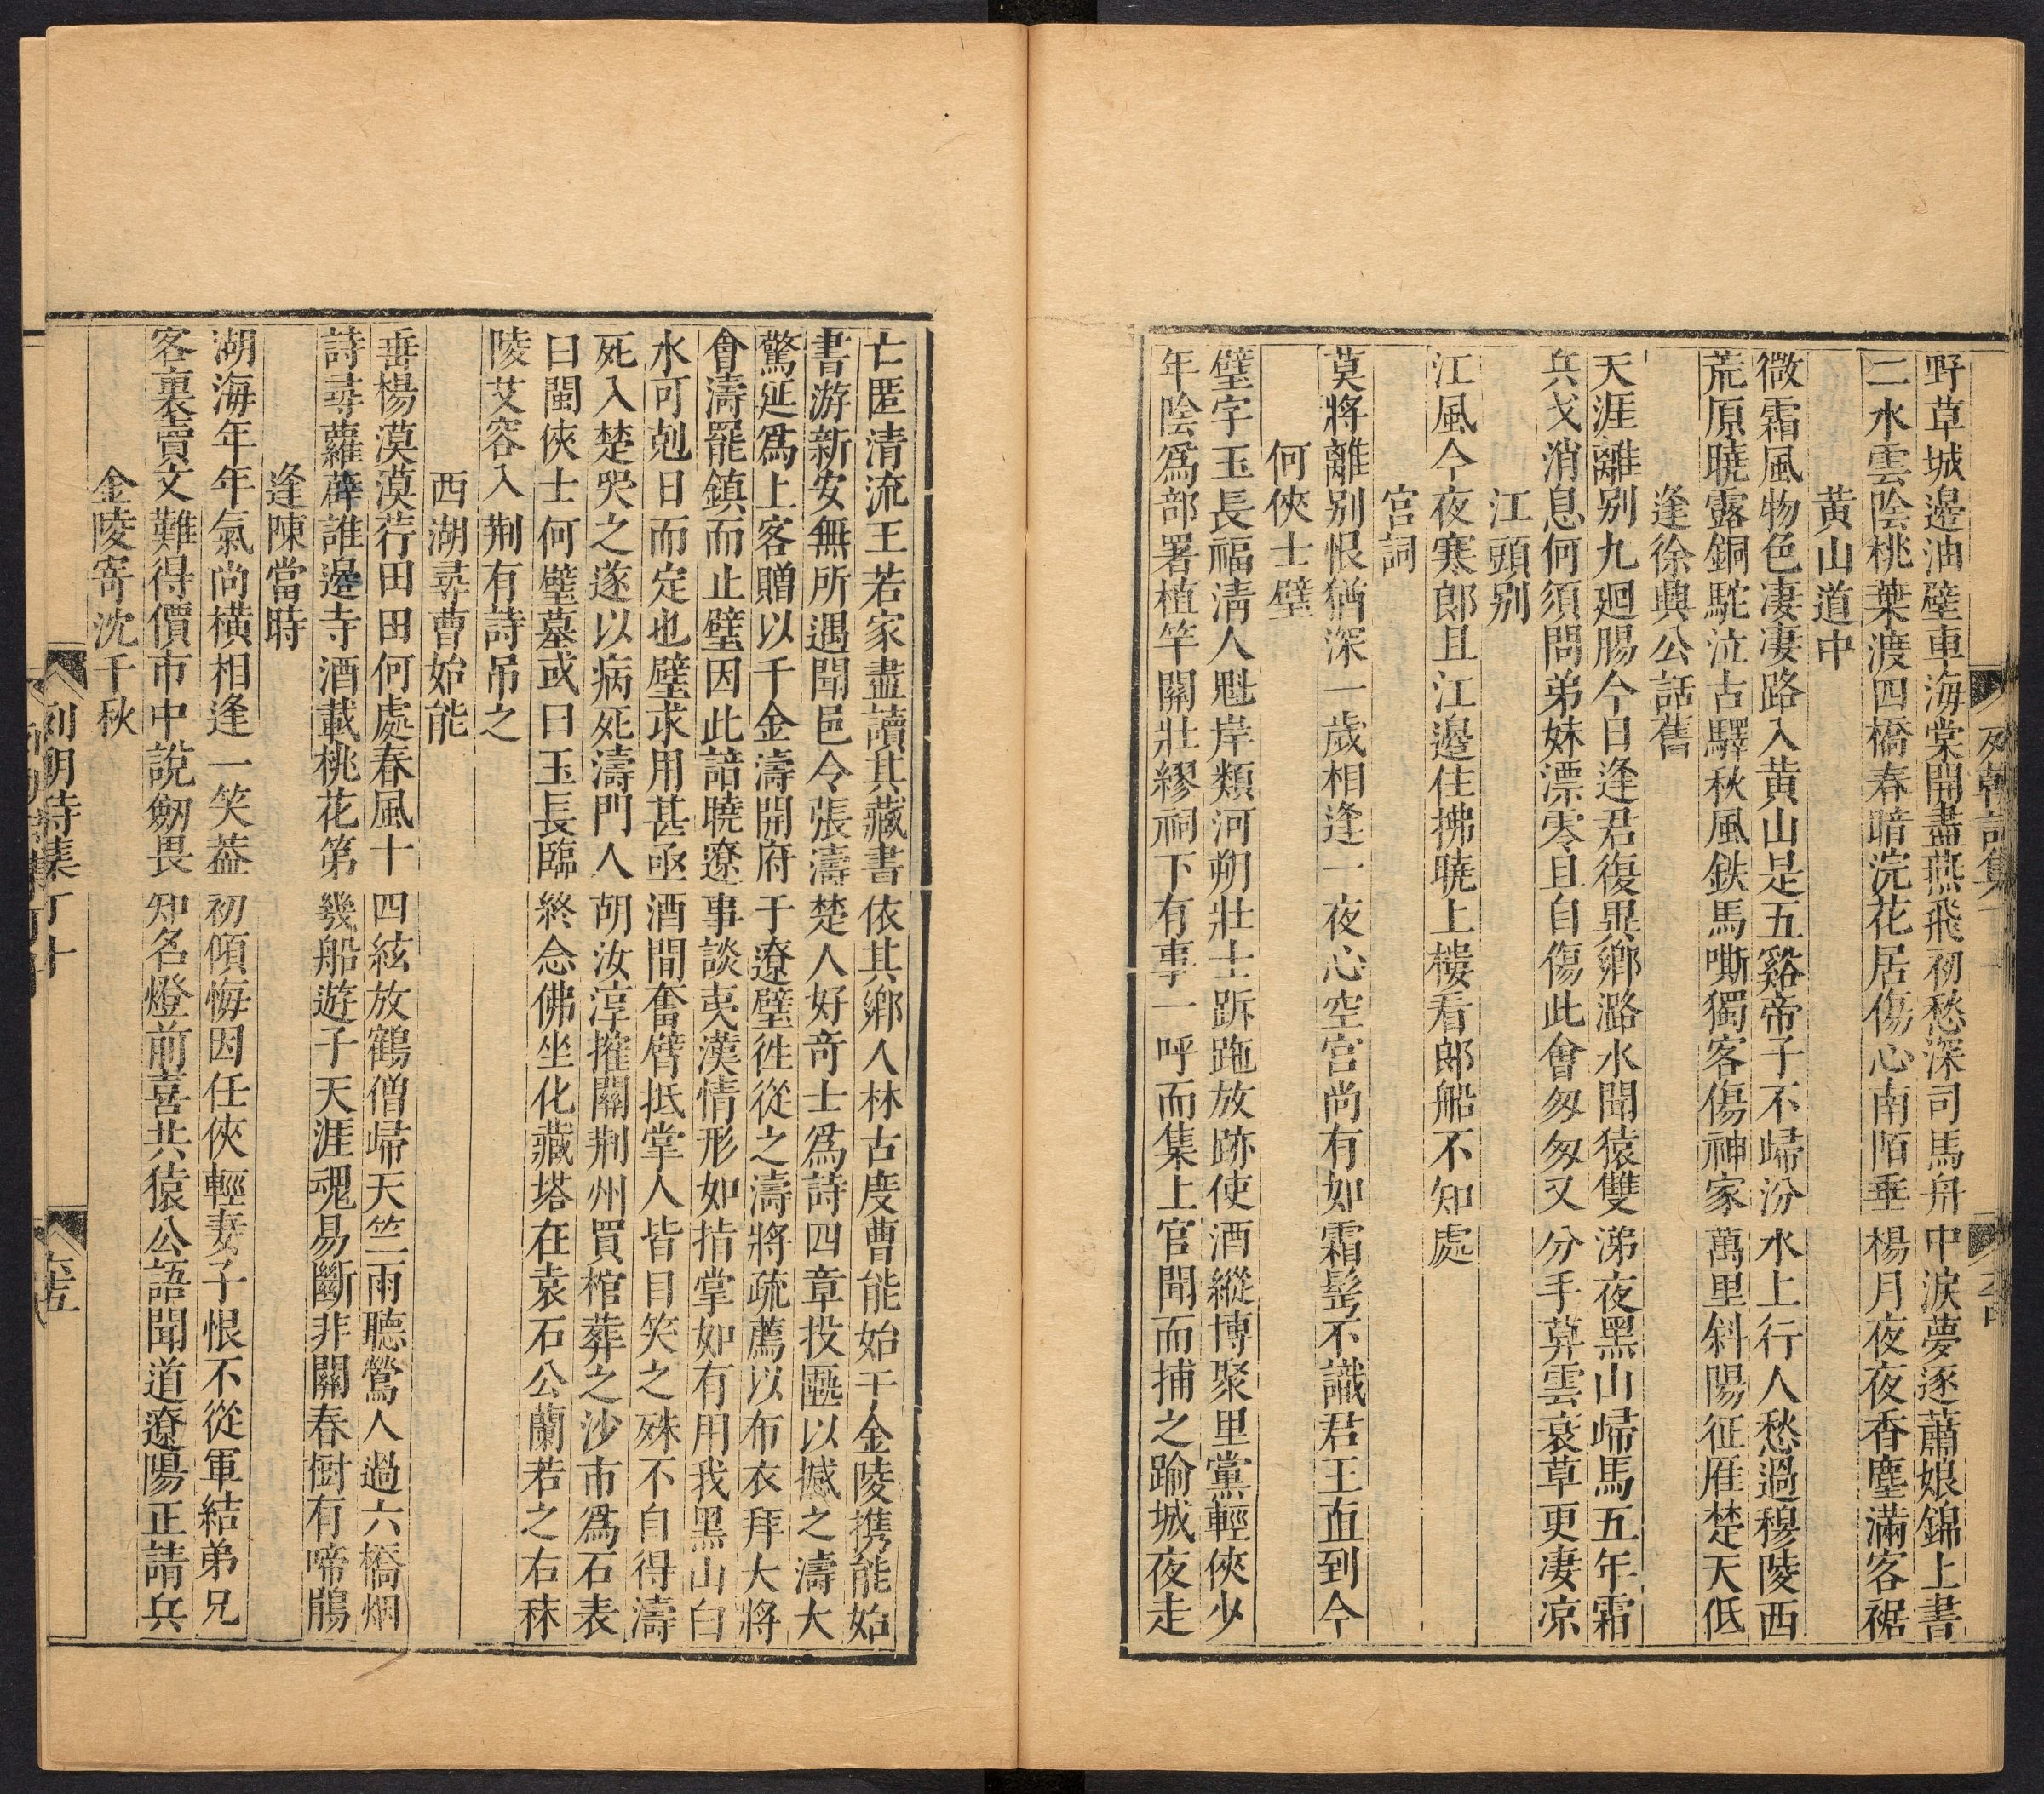 野草城邊油壁車海棠開盡燕飛初愁深司馬舟中淚夢逐蕭娘錦上書
二水雲陰桃葉渡四橋春暗浣花居傷心南陌垂楊月夜夜香塵滿客裾
黄山道中
微霜風物色凄凄路入黄山是五谿帝子不歸汾水上行人愁過穆陵西
荒原曉露銅駝泣古驛秋風鉄馬嘶獨客傷神家萬里斜陽征雁楚天低
逢徐興公話舊
天涯離别九廻腸今日逢君復異鄉潞水聞猿雙涕夜黑山歸馬五年霜
兵戈消息何須問弟妹漂零且自傷此會匆匆又分手莫雲衰草更凄凉
江頭别
江風今夜寒郎且江邊住拂曉上樓看郎船不知處
宫詞
莫將離别恨猶深一歲相逢一夜心空宫尚有如霜髩不識君王直到今
何俠士璧
璧字玉長福清人魁岸類河朔壯士跅跪放跡使酒縱博聚里黨輕俠少
年陰爲部署植竿關壯繆祠下有事一呼而集上官聞而捕之踰城夜走
亡匿清流王若家盡讀其藏書依其鄉人林古度曹能始于金陵携能始
書游新安無所遇聞邑令張濤楚人好奇士爲詩四章投匭以撼之濤大
驚延爲上客贈以千金濤開府于遼璧徃從之濤將疏薦以布衣拜大將
會濤罷鎮而止璧因此諳曉遼事談夷漢情形如指掌如有用我黑山白
水可剋日而定也璧求用甚亟酒間奮臂抵掌人皆目笑之殊不自得濤
死入楚哭之遂以病死濤門人胡汝淳搉關荆州買棺葬之沙市爲石表
曰閩俠士何璧墓或曰玉長臨終念佛坐化藏塔在袁石公蘭若之右秣
陵艾容入荆有詩吊之
西湖尋曹始能
垂楊漠漠荇田田何處春風十四絃放鶴僧歸天竺雨聽鶯人過六橋烟
詩尋蘿薜誰邊寺酒載桃花第幾船遊子天涯魂易斷非關春樹有啼鵑
逢陳當時
湖海年年氣尚橫相逢一笑葢初傾悔因任俠輕妻子恨不從軍結弟兄
客裏賣文難得價市中說劒畏知名燈前喜共猿公語聞道遼陽正請兵
金陵寄沈千秋
列朝詩集丁十